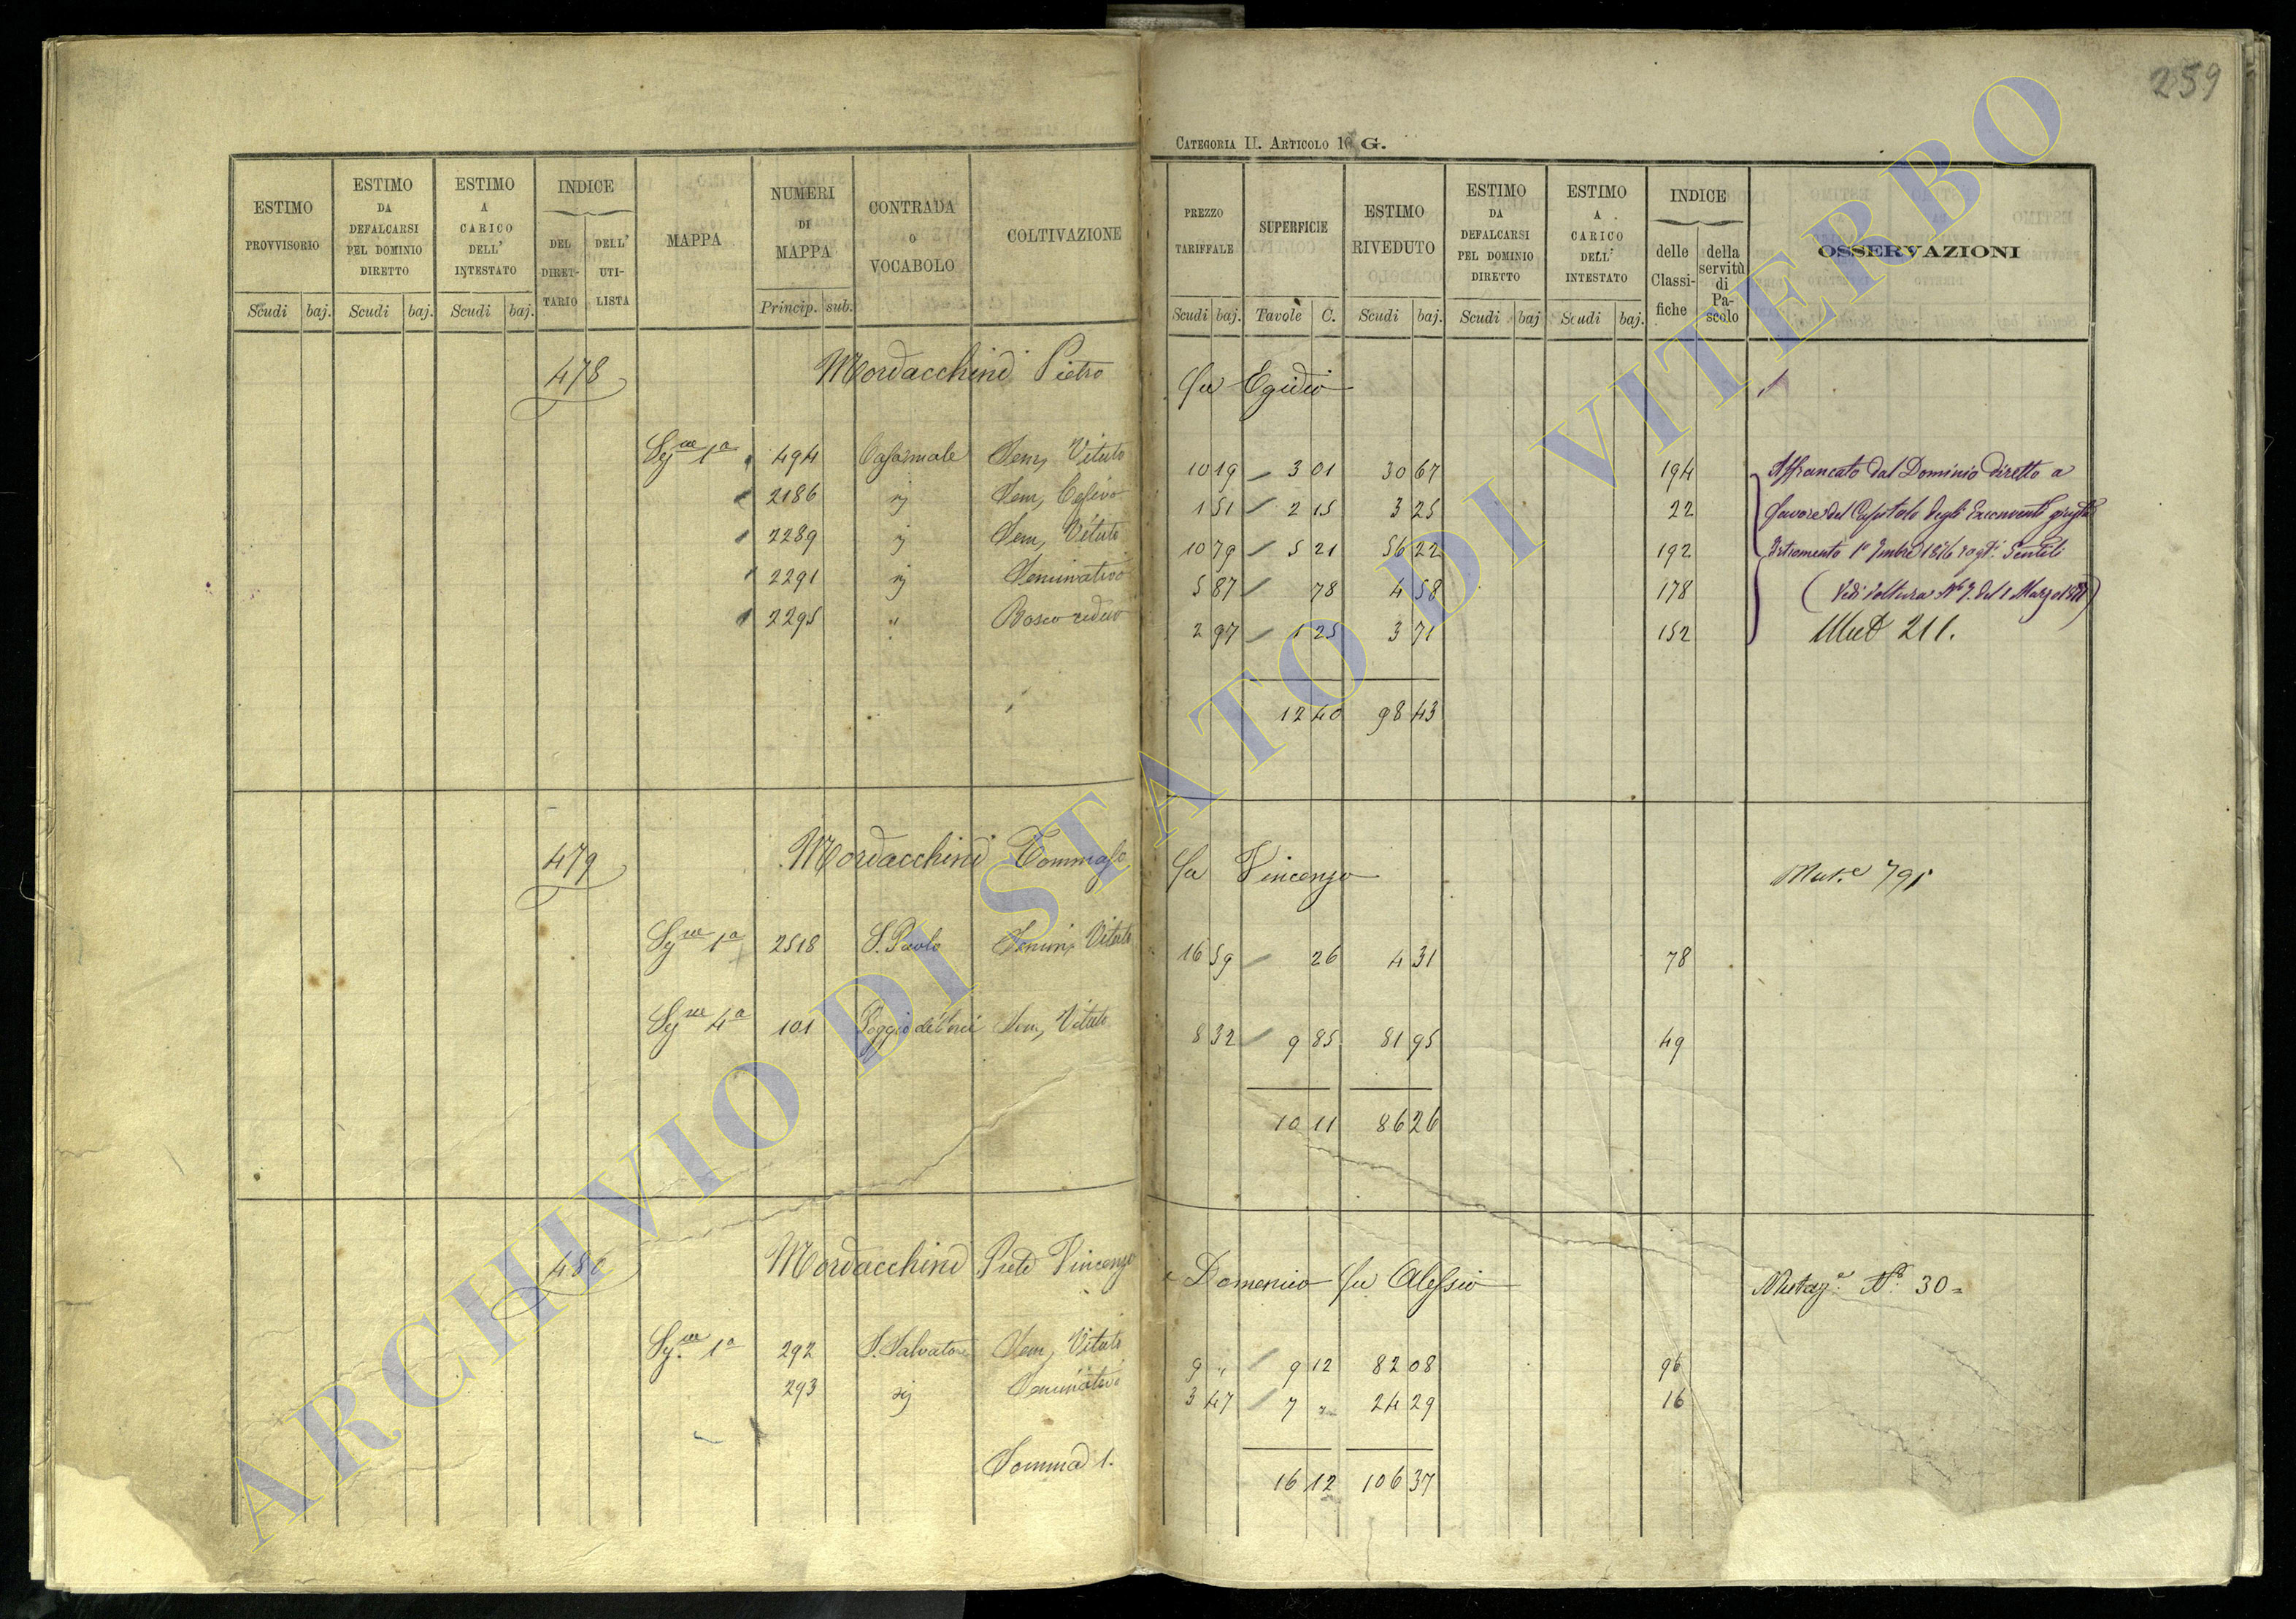 259
CATEGORIA II. ARTICOLO 16 G.
ESTIMO PROVVISORIO ESTIMO DA DEFALCARSI PEL DOMINIO DIRETTO ESTIMO A CARICO DELL' INTESTATO INDICE DEL DIRETTARIO DELL' UTILISTA MAPPA NUMERI DI MAPPA CONTRADA O VOCABOLO COLTIVAZIONE PREZZO TARIFFALE SUPERFICIE ESTIMO RIVEDUTO ESTIMO DA DEFALCARSI PEL DOMINIO DIRETTO ESTIMO A CARICO DELL' INTESTATO INDICE delle Classifiche della servitù di Pascolo OSSERVAZIONI
Scudi baj. Scudi baj. Scudi baj. Princip. sub. Scudi baj. Tavole C. Scudi baj. Scudi baj Scudi baj.
478 Mordacchini Pietro fu Egidio
Sez.ne 1a 494 Sem, Vitato 10 19 3 01 30 67 194 Affrancato dal Dominio diretto a
2186 Sem, 1 51 2 15 3 25 22 favore del Capitolo degli
2289 Sem, Vitato 10 79 5 21 56 22 192 Istromento 1°
2291 Seminativo 5 87 78 4 58 178 (Vedi Voltura N° 7. del 1 Marzo
2295 " Bosco ceduo 2 97 1 25 3 71 152 Mut 211.
12 40 98 43
479 Mordacchini Tommaso fu Vincenzo Mut.e 791
Sez.ne 1a 2518 S. Paolo Semin, Vitato 16 59 26 4 31 78
Sez.ne 4a 101 Sem, Vitato 8 32 9 85 81 95 49
10 11 86 26
480 Mordacchini Prete Vincenzo e Domenico fu Alessio Mutaz.e N.° 30=
Sez.ne 1a 292 S. Salvatore Sem, Vitato 9 " 9 12 82 08 96
293 Seminativo 3 47 7 " 24 29 16
Somma 1. 16 12 106 37
ARCHIVIO DI STATO DI VITERBO